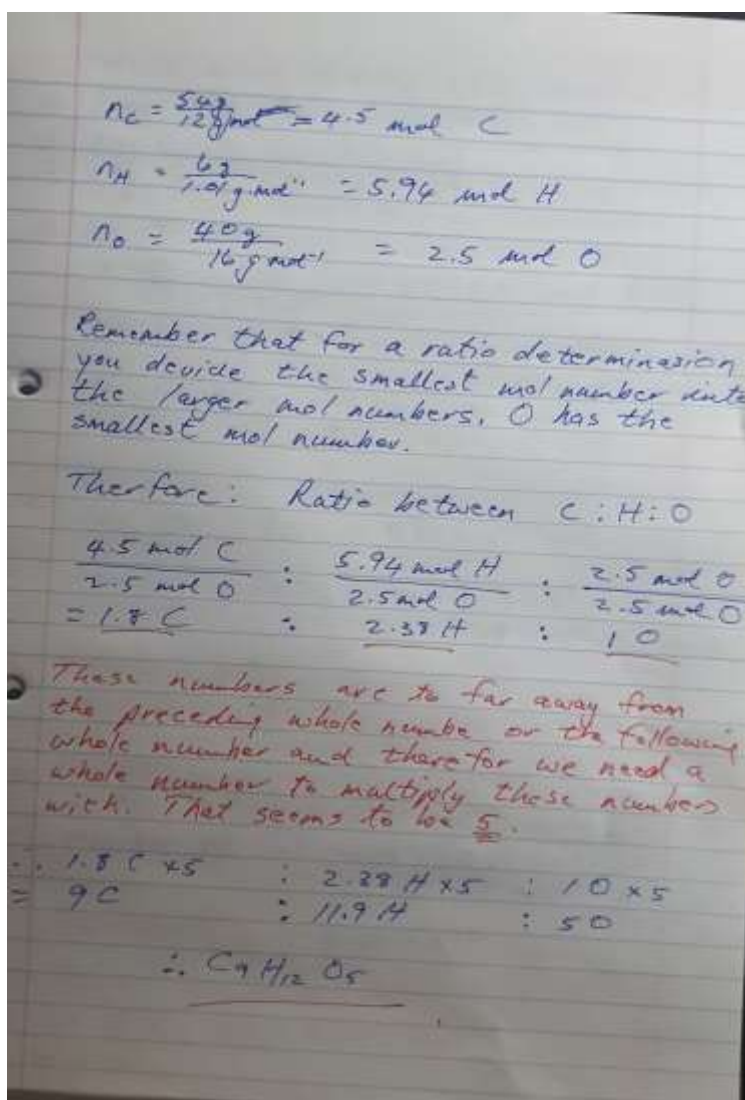 nC = 54g / 12 g mol⁻¹ = 4.5 mol C
nH = 6g / 1.01 g.mol⁻¹ = 5.94 mol H
nO = 40g / 16 g mol⁻¹ = 2.5 mol O
Remember that for a ratio determinasion
you devide the smallest mol number into
the larger mol numbers. O has the
smallest mol number.
Therfore: Ratio between C : H : O
4.5 mol C / 2.5 mol O : 5.94 mol H / 2.5 mol O : 2.5 mol O / 2.5 mol O
= 1.8 C : 2.38 H : 1 O
These numbers are to far away from
the preceding whole numbe or the following
whole number and therefor we need a
whole number to multiply these numbers
with. That seems to be 5.
∴ 1.8 C x5 : 2.38 H x5 : 1 O x5
= 9C : 11.9 H : 5O
∴ C9 H12 O5